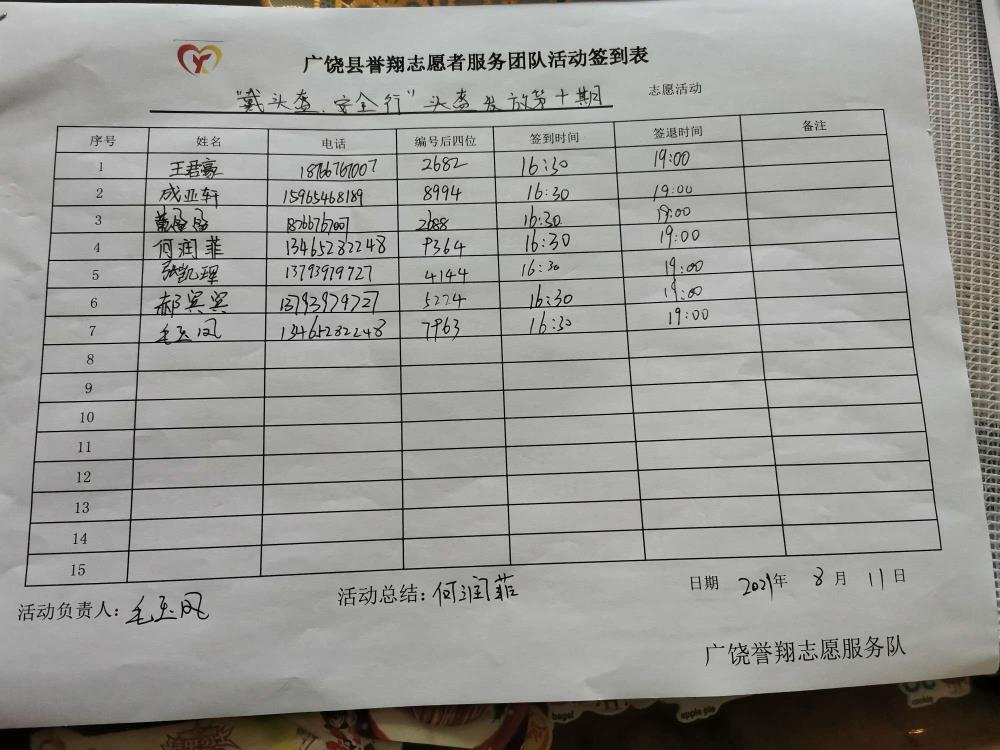 广饶县誉翔志愿者服务团队活动签到表
"戴头盔、安全行"头盔发放第十期 志愿活动
序号 姓名 电话 编号后四位 签到时间 签退时间 备注
1 王君豪 18766767007 2682 16:30 19:00
2 成亚轩 15965468189 8994 16:30 19:00
3 2688 16:30 19:00
4 何润菲 13465282248 9364 16:30 19:00
5 张凯理 13793979727 4144 16:30 19:00
6 郝宾宾 13793979727 5224 16:30 19:00
7 毛玉凤 13465282248 7963 16:30 19:00
8
9
10
11
12
13
14
15
活动负责人：毛玉凤 活动总结：何润菲 日期 2021年 8月 11日
广饶誉翔志愿服务队
bagel
apple pie
cookie